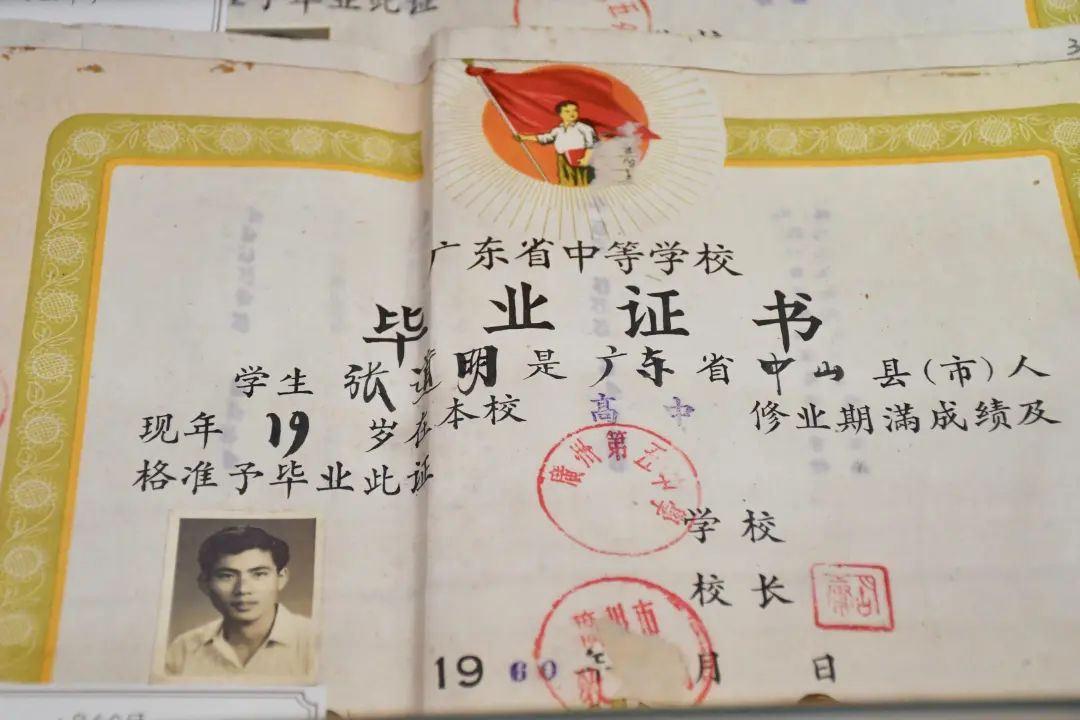 予毕业此证
广东省中等学校
毕业证书
学生 张道明 是 广东 省 中山 县(市)人
现年 19 岁在本校 高中 修业期满成绩及
格准予毕业此证
廣州第五中學
学校
校长
州市
1960 年 月 日